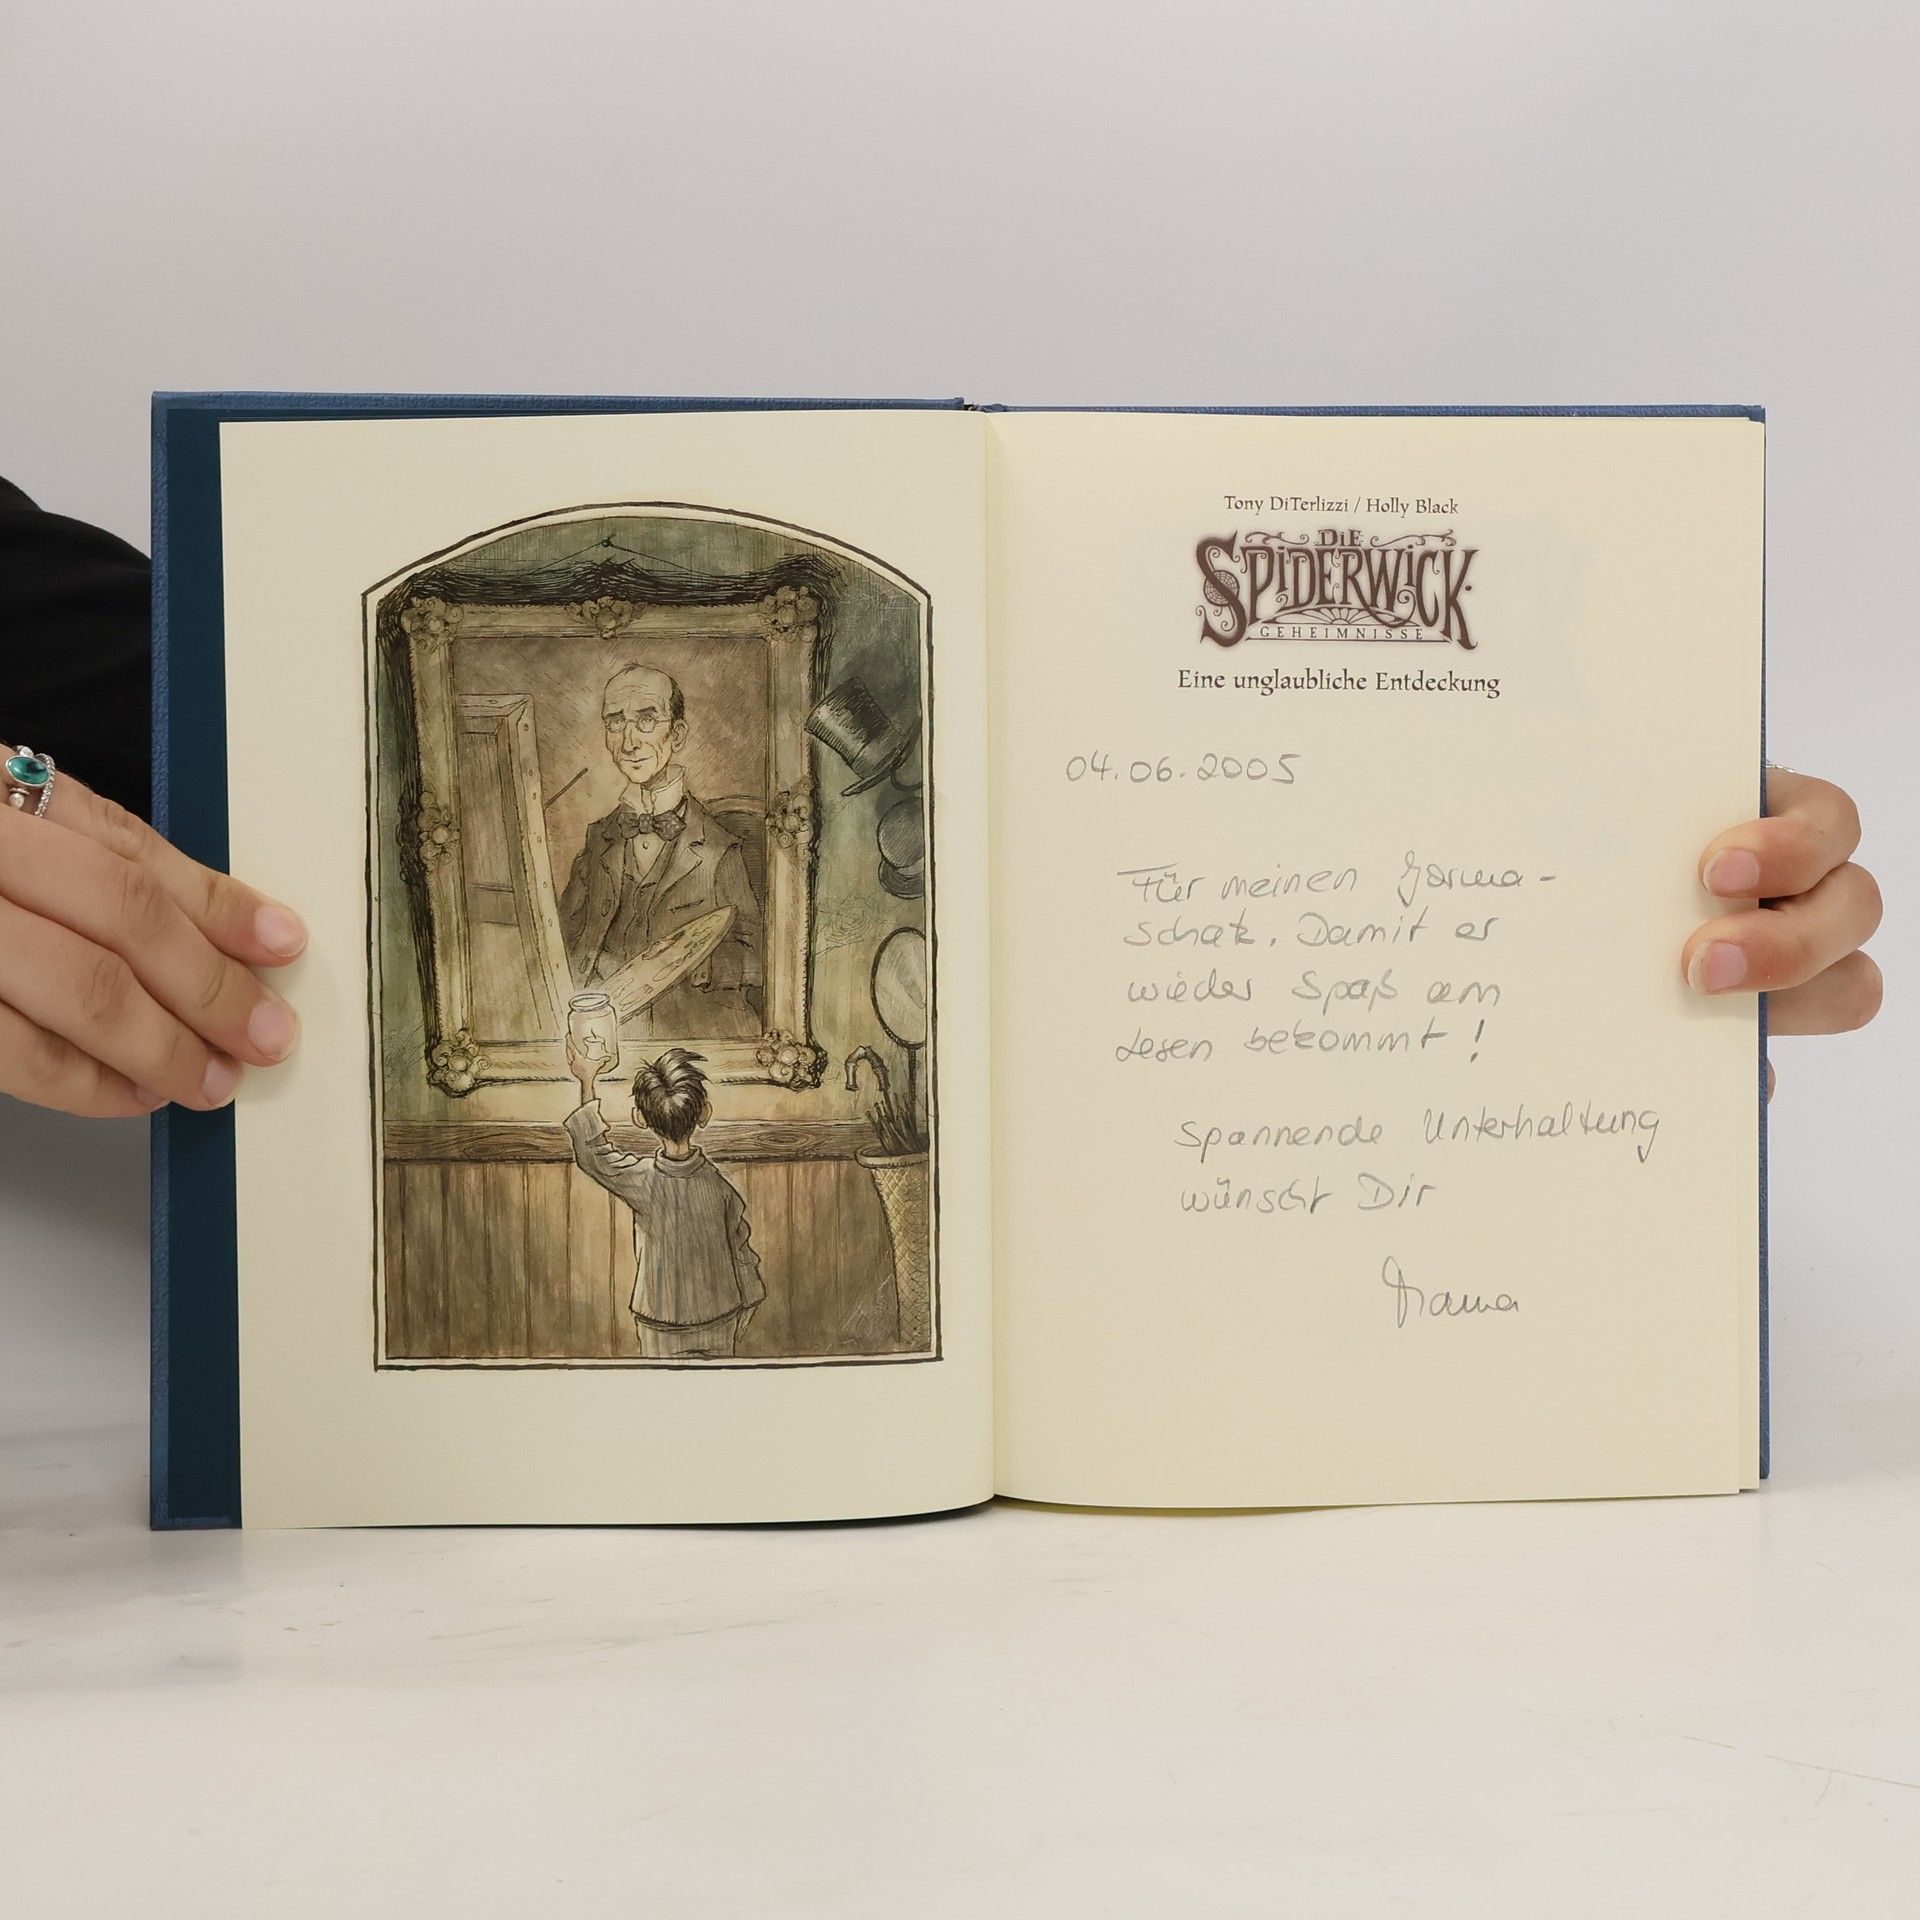 Tony DiTerlizzi / Holly Black
DIE
SPIDERWICK
GEHEIMNISSE
Eine unglaubliche Entdeckung
04.06.2005
Für meinen Jarma-
schatz. Damit er
wieder Spaß am
Lesen bekommt!
Spannende Unterhaltung
wünscht Dir
Mama